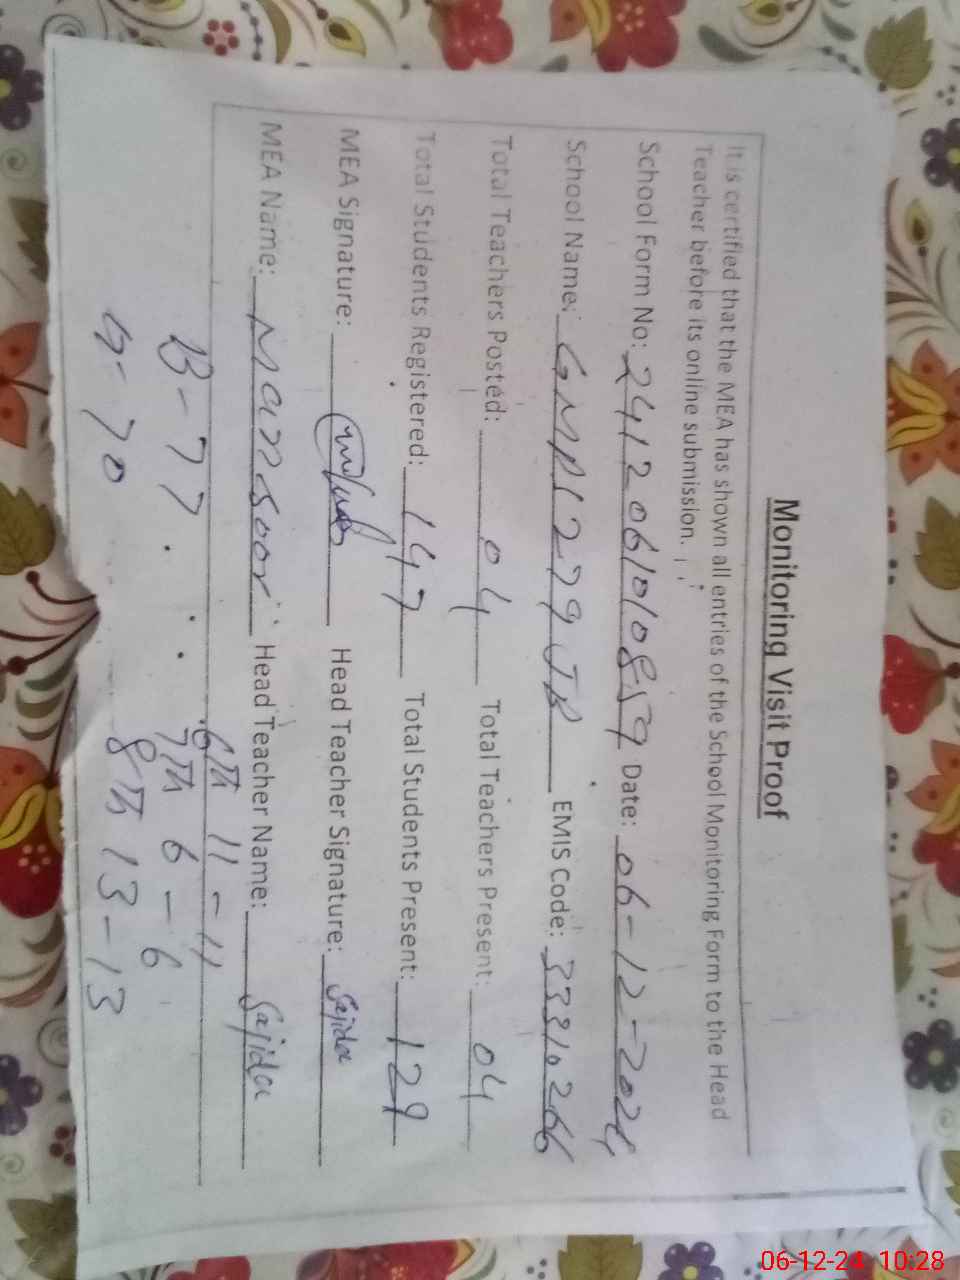 Monitoring Visit Proof
It is certified that the MEA has shown all entries of the School Monitoring Form to the Head
Teacher before its online submission.
School Form No: 2412061010859 Date: 06-12-2024
School Name: GMPS 279 JB EMIS Code: 33310266
Total Teachers Posted: 04 Total Teachers Present: 04
Total Students Registered: 147 Total Students Present: 129
MEA Signature: Head Teacher Signature: Sajida
MEA Name: Mansoor Head Teacher Name: Sajida
6th 11-11
B-77 7th 6-6
G-70 8th 13-13
06-12-24 10:28